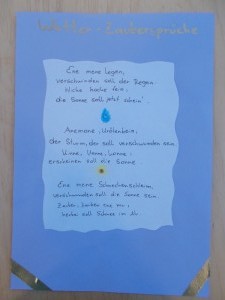 Wetter-Zaubersprüche
Ene mene Regen,
verschwinden soll der Regen
Hicke hacke
die Sonne soll jetzt schein'.
Anemone, Urällenbein,
der Sturm, der soll verschwunden sein
Hinne, Hanne, Lonne:
erscheinen soll die Sonne
Ene mene Schneckenschleim,
verschwunden soll die Sonne sein.
herbei soll Schnee im